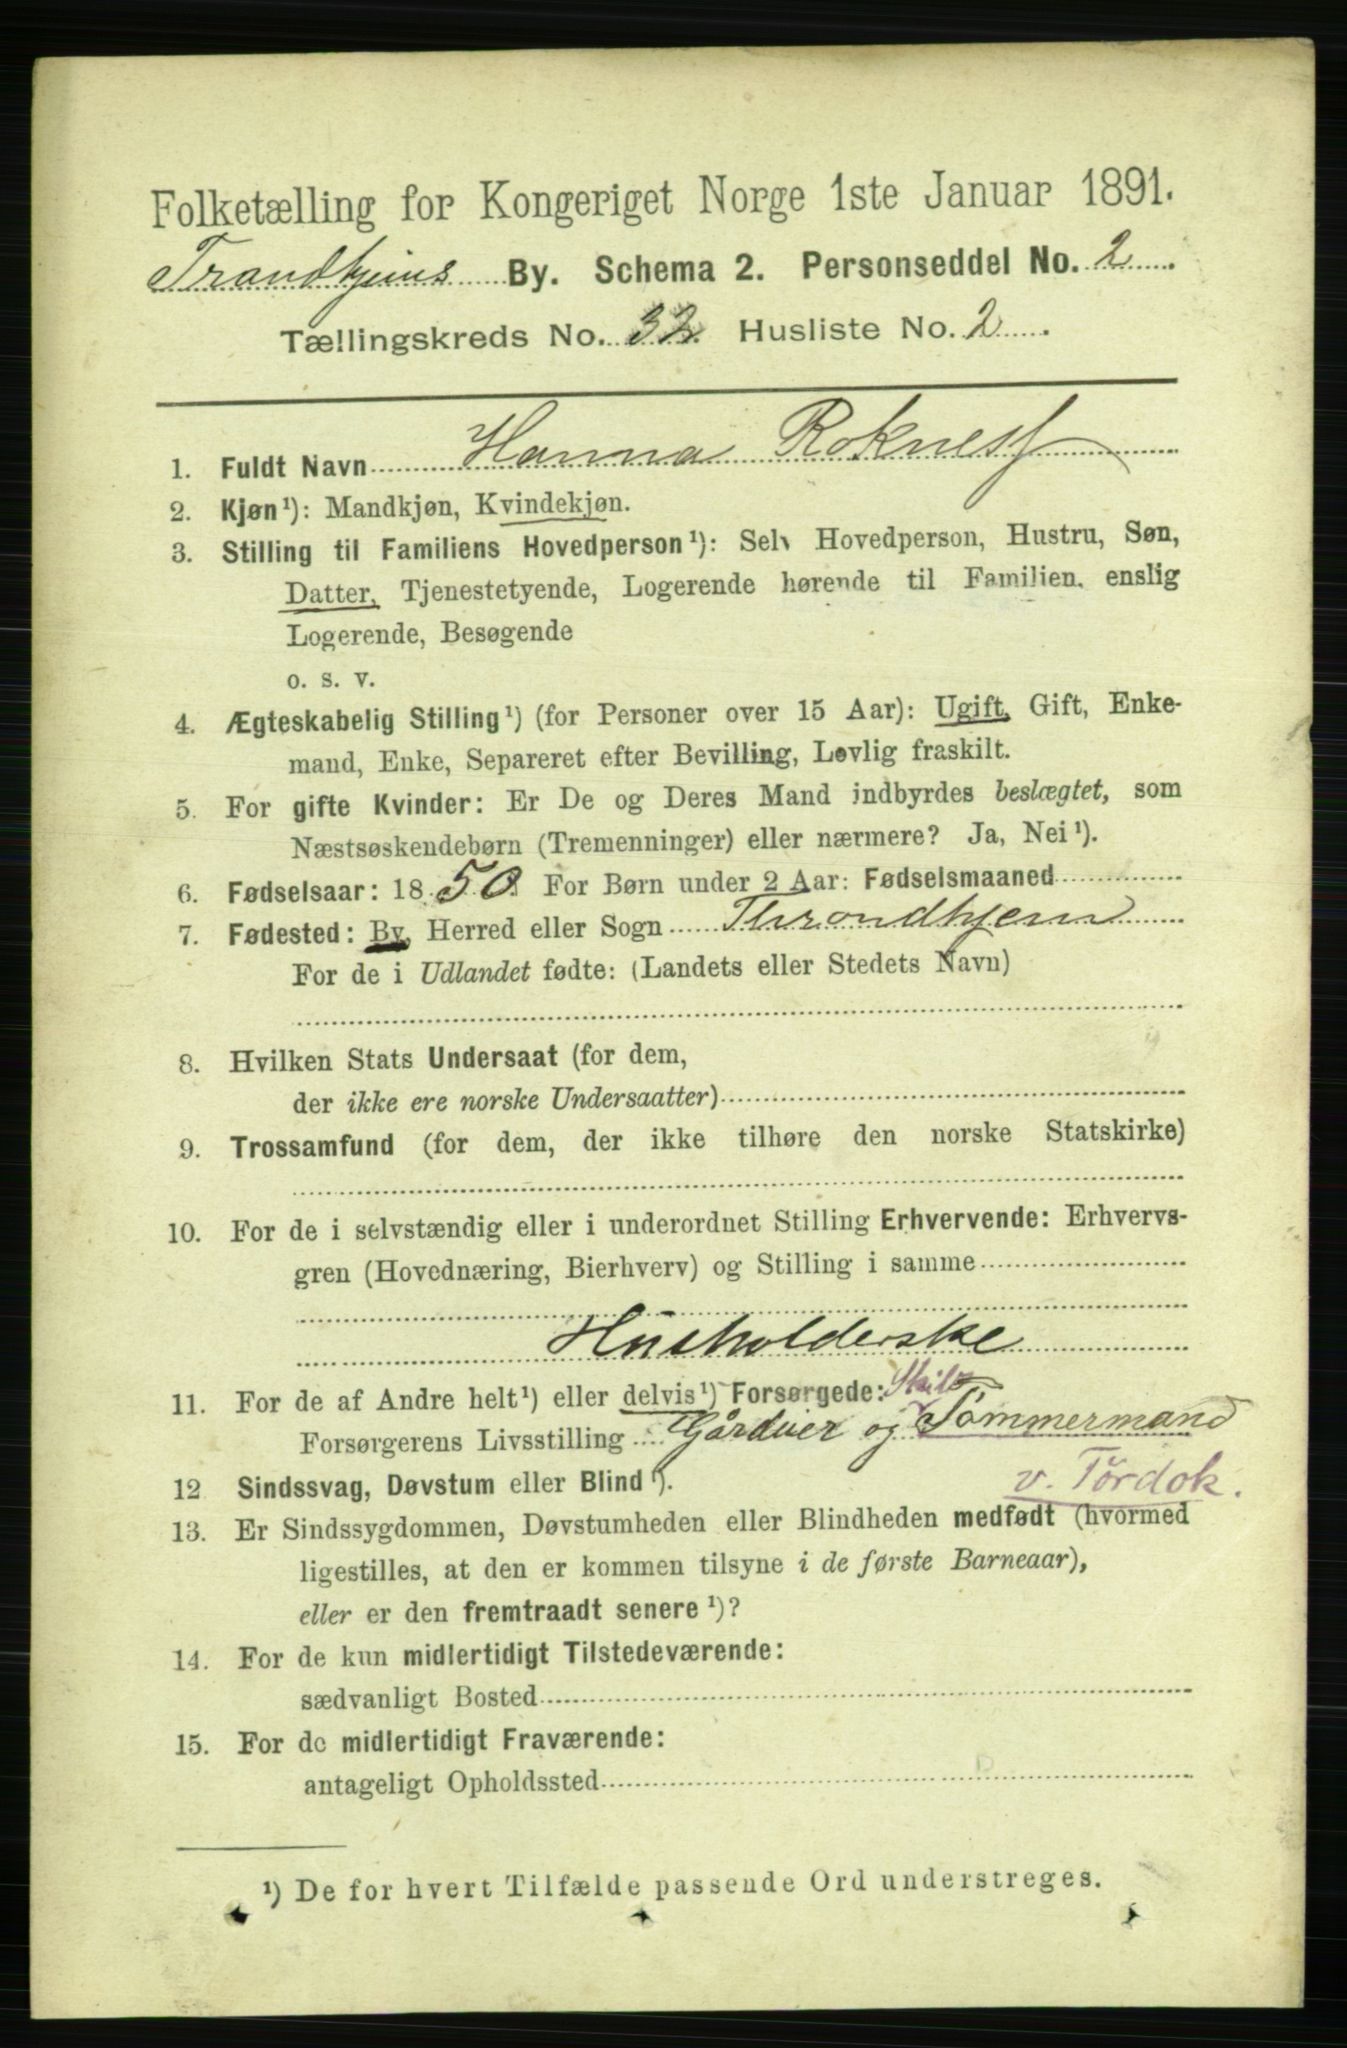 Folketælling for Kongeriget Norge 1ste Januar 1891.
Trondhjems By. Schema 2. Personseddel No. 2.
Tællingskreds No. 32. Husliste No. 2.
1. Fuldt Navn Hanna Roknes
2. Kjøn¹): Mandkjøn, Kvindekjøn.
3. Stilling til Familiens Hovedperson¹): Selv Hovedperson, Hustru, Søn,
Datter, Tjenestetyende, Logerende hørende til Familien, enslig
Logerende, Besøgende
o. s. v.
4. Ægteskabelig Stilling¹) (for Personer over 15 Aar): Ugift, Gift, Enke-
mand, Enke, Separeret efter Bevilling, Lovlig fraskilt.
5. For gifte Kvinder: Er De og Deres Mand indbyrdes beslægtet, som
Næstsøskendebørn (Tremenninger) eller nærmere? Ja, Nei¹).
6. Fødselsaar: 1850. For Børn under 2 Aar: Fødselsmaaned
7. Fødested: By, Herred eller Sogn Throndhjem
For de i Udlandet fødte: (Landets eller Stedets Navn)
8. Hvilken Stats Undersaat (for dem,
der ikke ere norske Undersaatter)
9. Trossamfund (for dem, der ikke tilhøre den norske Statskirke)
10. For de i selvstændig eller i underordnet Stilling Erhvervende: Erhvervs-
gren (Hovednæring, Bierhverv) og Stilling i samme
Husholderske
11. For de af Andre helt¹) eller delvis¹) Forsørgede:
Forsørgerens Livsstilling Gårdeier og Tømmermand
v. Tördok.
12 Sindssvag, Døvstum eller Blind¹).
13. Er Sindssygdommen, Døvstumheden eller Blindheden medfødt (hvormed
ligestilles, at den er kommen tilsyne i de første Barneaar),
eller er den fremtraadt senere¹)?
14. For de kun midlertidigt Tilstedeværende:
sædvanligt Bosted
15. For de midlertidigt Fraværende:
antageligt Opholdssted
¹) De for hvert Tilfælde passende Ord understreges.